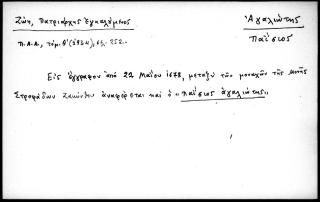 Ζώη, Πατριάρχης Ἐγκαλύμενος
Ἀγαλιώτης
Παΐσιος
Π.Α.Α., τόμ. θ' (1934), σελ. 252.
Εἰς ἔγγραφον ἀπὸ 22 Μαΐου 1678, μεταξὺ τῶν μοναχῶν τῆς μονῆς
Στροφάδων Ζακύνθου ἀναφέρεται καὶ ὁ «Παΐσιος ἀγαλιώτης»